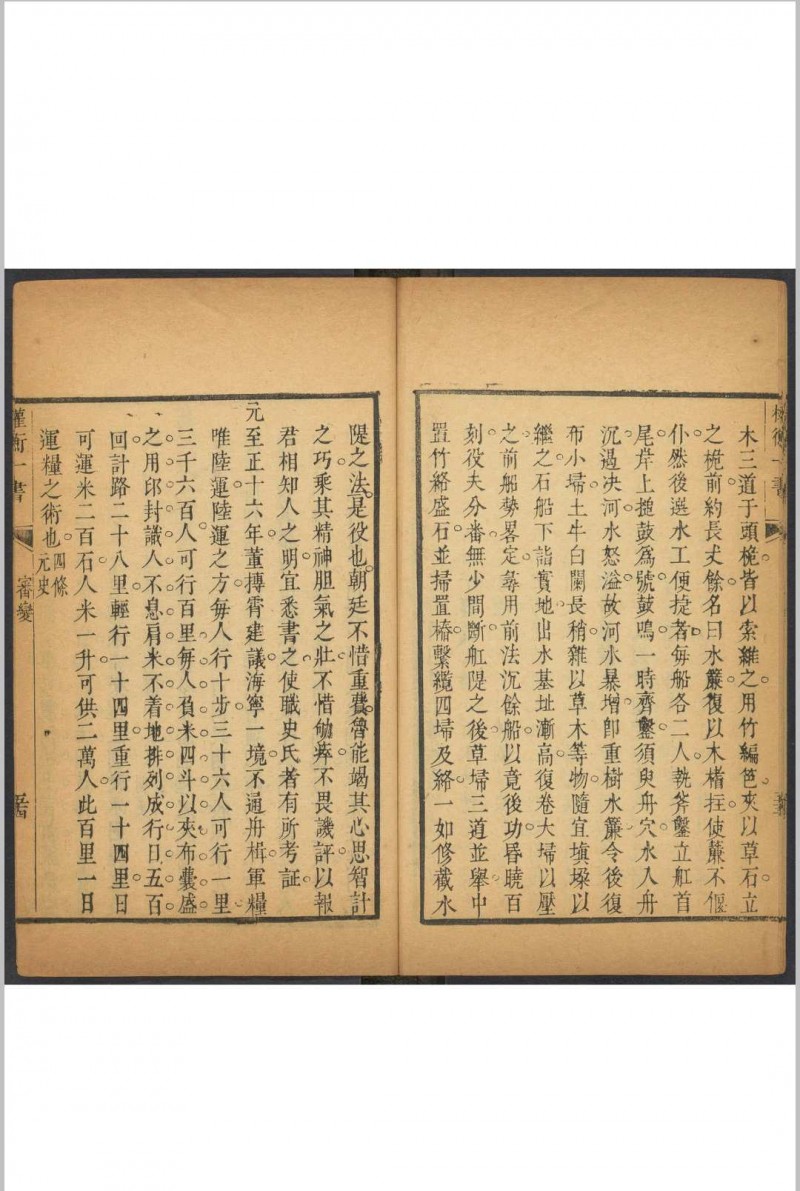 木三道子頭桅皆以索維之用竹編笆夾以草石立
之桅前約長丈餘名曰水簾復以木楮拄使簾不偃
仆然後選水工便捷者每船各二人執斧鑿立舡首
尾岸上搥鼓為號鼓鳴一時齊鑿須臾舟穴水入舟
沉遏決河水怒溢故河水暴增卽重樹水簾令後復
布小埽土牛白闌長稍雜以草木等物隨宜塡垜以
繼之石船下詣實地出水基址漸高復卷大埽以壓
之前船勢畧定尋用前法沉餘船以竟後功昏曉百
刻役夫分番無少間斷舡隄之後草埽三道並舉中
置竹絡盛石並埽置樁繫纜四埽及絡一如修截水
隄之法是役也朝廷不惜重費魯能竭其心思智計
之巧乘其精神胆氣之壯不惜劬瘁不畏譏評以報
君相知人之明宜悉書之使職史氏者有所考証
元至正十六年董摶霄建議海寧一境不通舟楫軍糧
唯陸運陸運之方每人行十步三十六人可行一里
三千六百人可行百里每人負米四斗以夾布囊盛
之用印封識人不息肩米不着地排列成行日五百
回計路二十八里輕行一十四里重行一十四里日
可運米二百石人米一升可供二萬人此百里一日
運糧之術也四條元史
權衡一書
審變